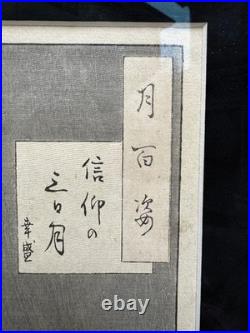 月百姿
信仰の
三日月
幸盛